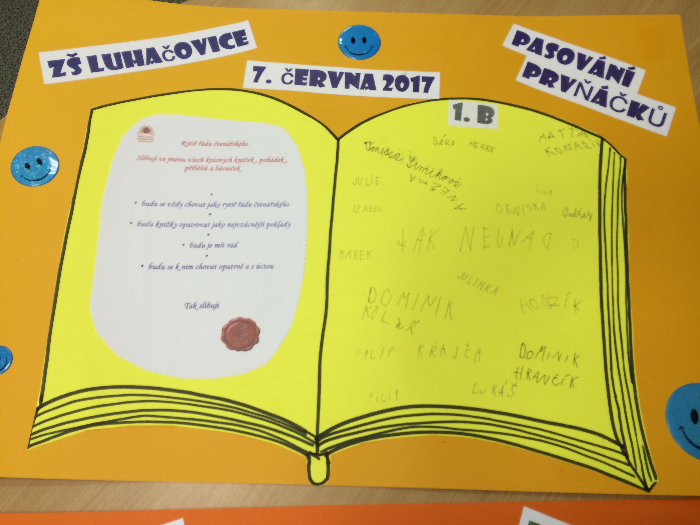 ZŠ LUHAČOVICE
7. ČERVNA 2017
PASOVÁNÍ
PRVŇÁČKŮ
Rytíř řádu čtenářského
Slibuji ve jménu všech krásných knížek, pohádek,
příběhů a básniček
• budu se vždy chovat jako rytíř řádu čtenářského
• budu knížky opatrovat jako nejvzácnější poklady
• budu je mít rád
• budu se k nim chovat opatrně a s úctou
Tak slibuji
1. B
SÁRA HERRE
JULIE
DENISKA
MAREK
JAK
DOMINIK
KOLAŘ
HONZÍK
FILIP KRAJČA
DOMINIK
HRANČÍK
FILIP
LUKÁŠ